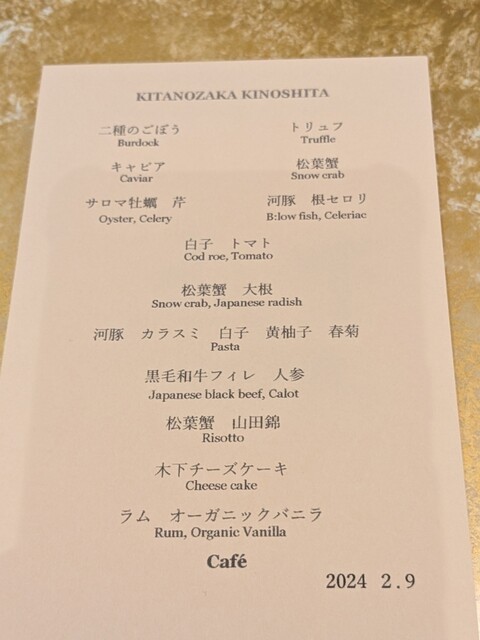 KITANOZAKA KINOSHITA
二種のごぼう トリュフ
Burdock Truffle
キャビア 松葉蟹
Caviar Snow crab
サロマ牡蠣 芹 河豚 根セロリ
Oyster, Celery B:low fish, Celeriac
白子 トマト
Cod roe, Tomato
松葉蟹 大根
Snow crab, Japanese radish
河豚 カラスミ 白子 黄柚子 春菊
Pasta
黒毛和牛フィレ 人参
Japanese black beef, Calot
松葉蟹 山田錦
Risotto
木下チーズケーキ
Cheese cake
ラム オーガニックバニラ
Rum, Organic Vanilla
Café
2024 2.9